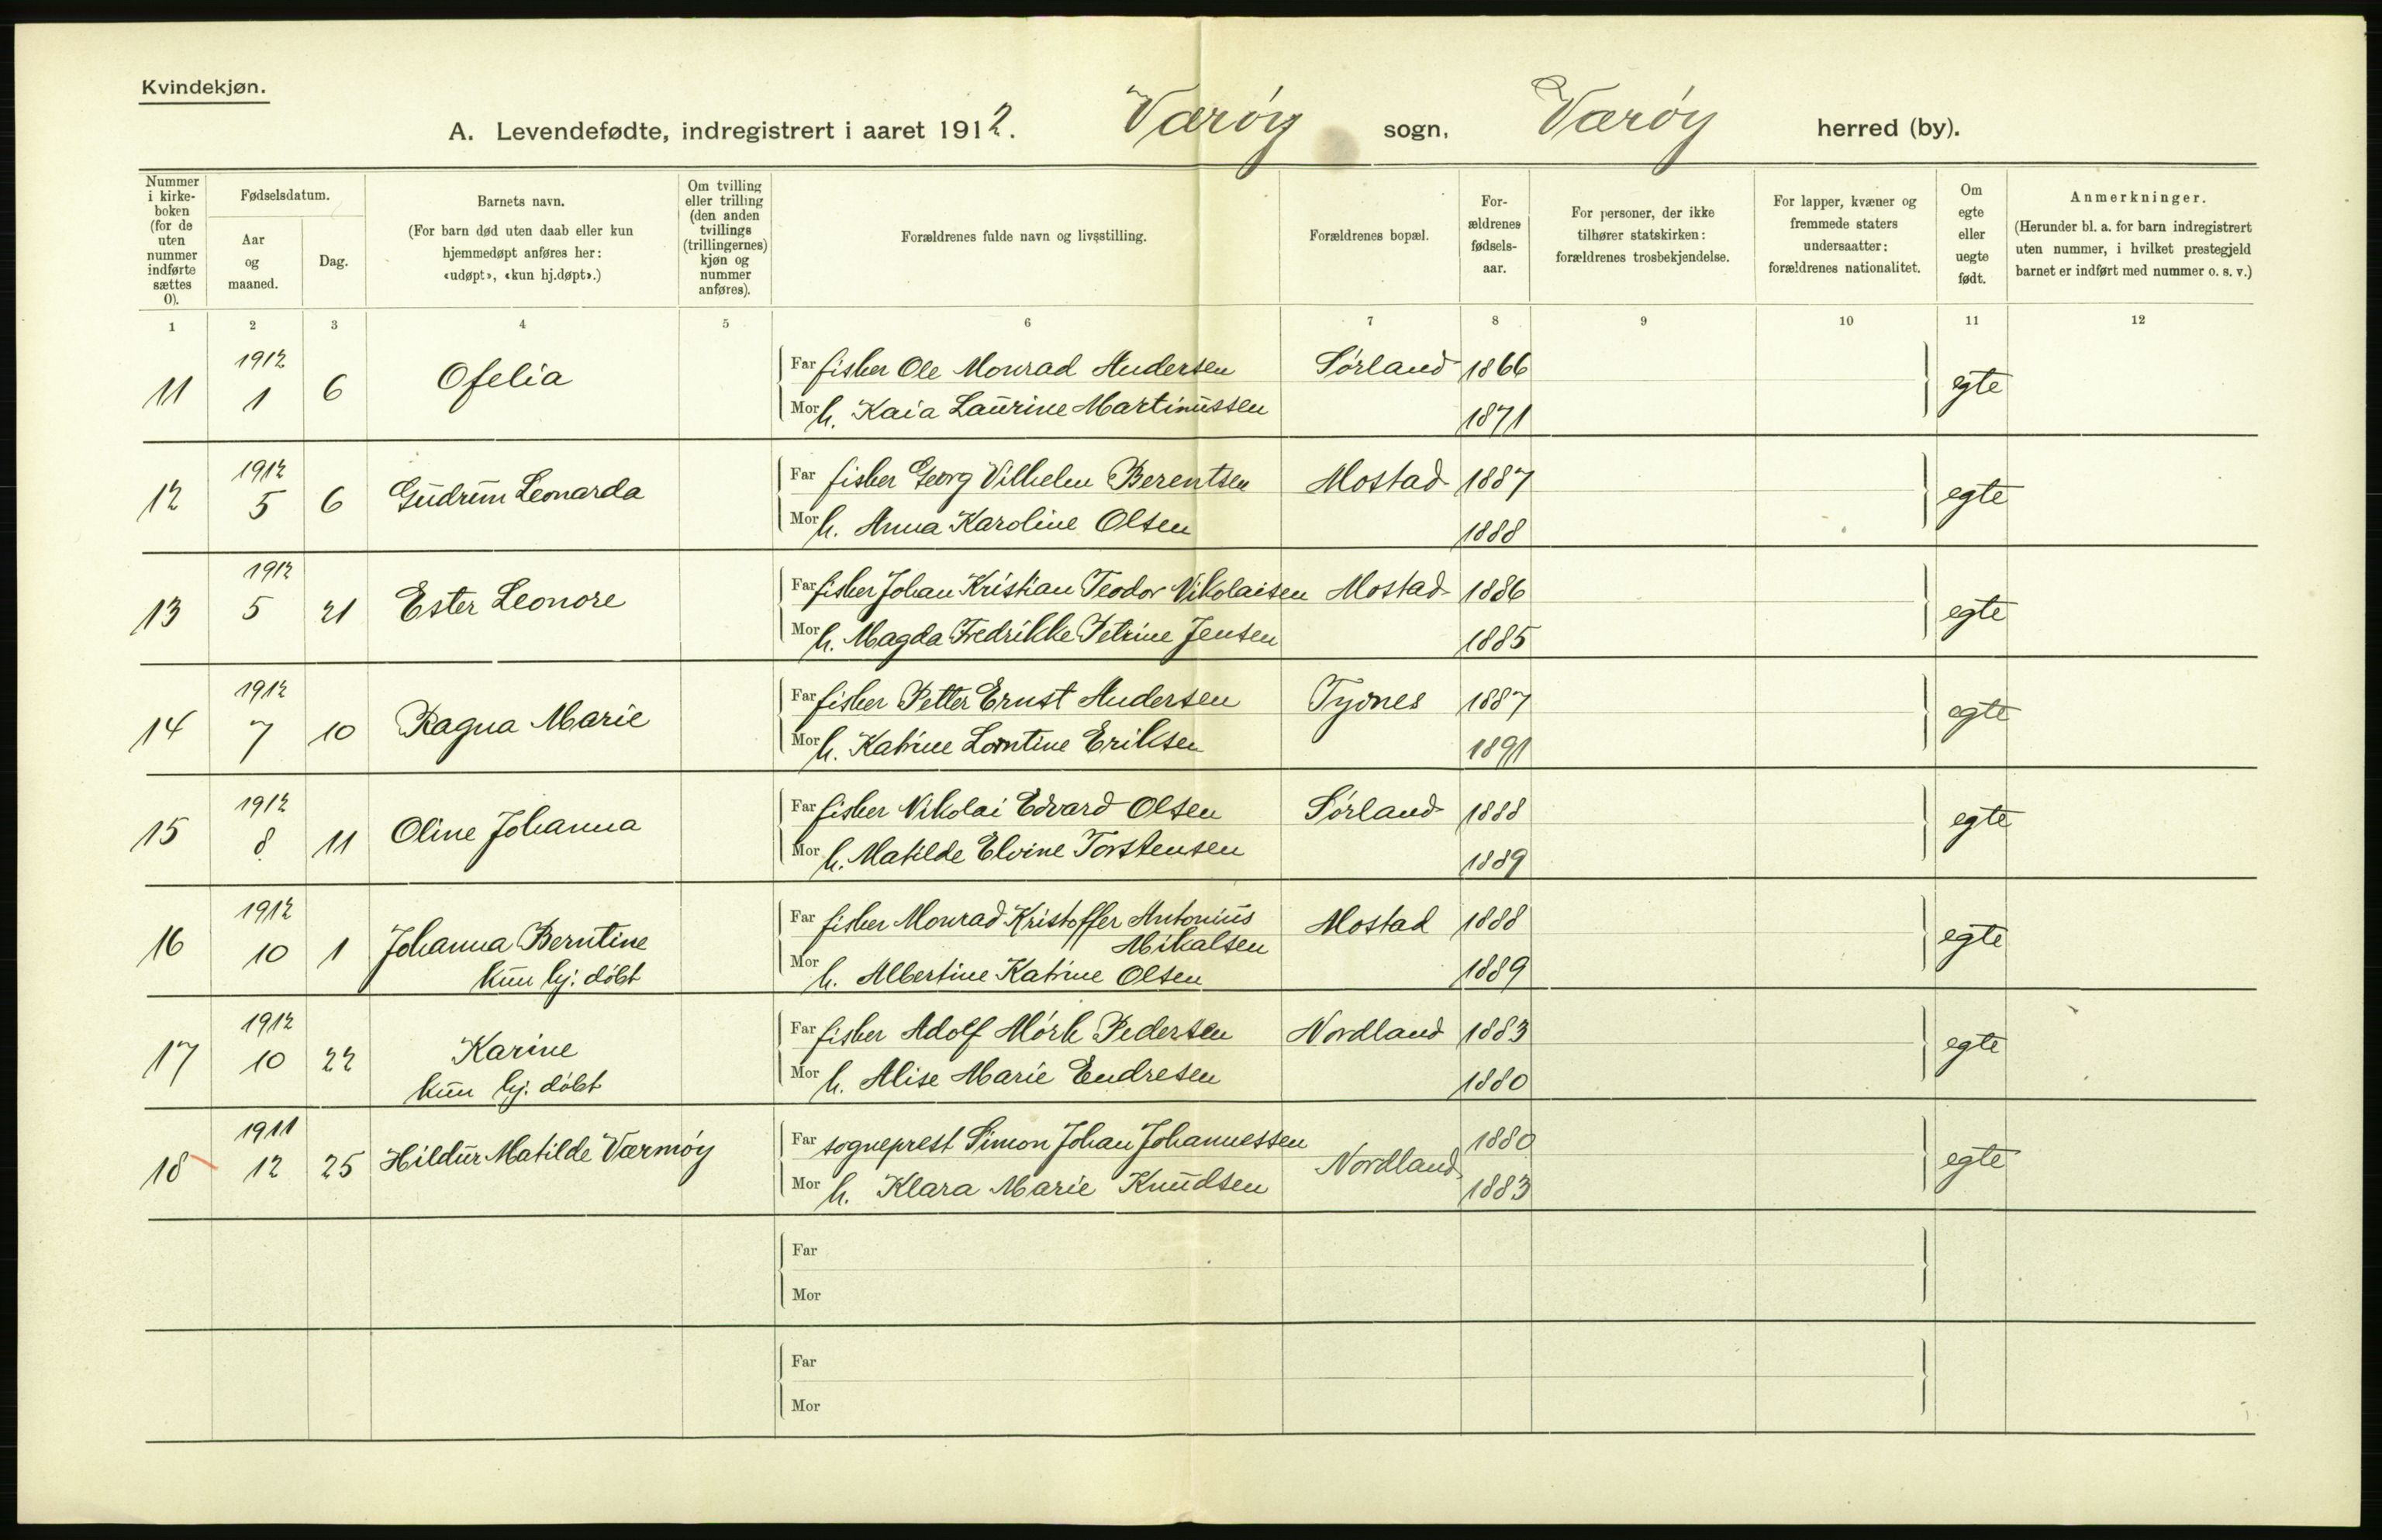 Kvindekjøn.
A. Levendefødte, indregistrert i aaret 1912. Værøy sogn, Værøy herred (by).
Nummer i kirkeboken (for de uten nummer indførte sættes 0).
Fødselsdatum.
Aar og maaned.
Dag.
Barnets navn.
(For barn død uten daab eller kun hjemmedøpt anføres her: «udøpt», «kun hj.døpt».)
Om tvilling eller trilling (den anden tvillings (trillingernes) kjøn og nummer anføres).
Forældrenes fulde navn og livsstilling.
Forældrenes bopæl.
Forældrenes fødselsaar.
For personer, der ikke tilhører statskirken: forældrenes trosbekjendelse.
For lapper, kvæner og fremmede staters undersaatter: forældrenes nationalitet.
Om egte eller uegte født.
Anmerkninger.
(Herunder bl. a. for barn indregistrert uten nummer, i hvilket prestegjeld barnet er indført med nummer o. s. v.)
1 2 3 4 5 6 7 8 9 10 11 12
11 1912 1 6 Ofelia Far fisker Ole Monrad Andersen Sørland 1866 egte
Mor h. Kaia Laurine Martinussen 1871
12 1912 5 6 Gudrun Leonarda Far fisker Georg Vilhelm Berentsen Mostad 1887 egte
Mor h. Anna Karoline Olsen 1888
13 1912 5 21 Ester Leonore Far fisker Johan Kristian Teodor Nikolaisen Mostad 1886 egte
Mor h. Magda Fredrikke Petrine Jensen 1885
14 1912 7 10 Ragna Marie Far fisker Petter Ernst Andersen Tyvnes 1887 egte
Mor h. Katrine Lorntine Eriksen 1891
15 1912 8 11 Oline Johanna Far fisker Nikolai Edvard Olsen Sørland 1888 egte
Mor h. Matilde Elvine Torstensen 1889
16 1912 10 1 Johanna Berntine Far fisker Monrad Kristoffer Antonius Mostad 1888 egte
Mikalsen
kun hj. døbt Mor h. Albertine Katrine Olsen 1889
17 1912 10 22 Karine Far fisker Adolf Mørk Pedersen Nordland 1883 egte
kun hj. døbt Mor h. Alise Marie Endresen 1880
18 1911 12 25 Hildur Matilde Værnøy Far sogneprest Simon Johan Johannessen Nordland 1880 egte
Mor h. Klara Marie Knudsen 1883
Far
Mor
Far
Mor